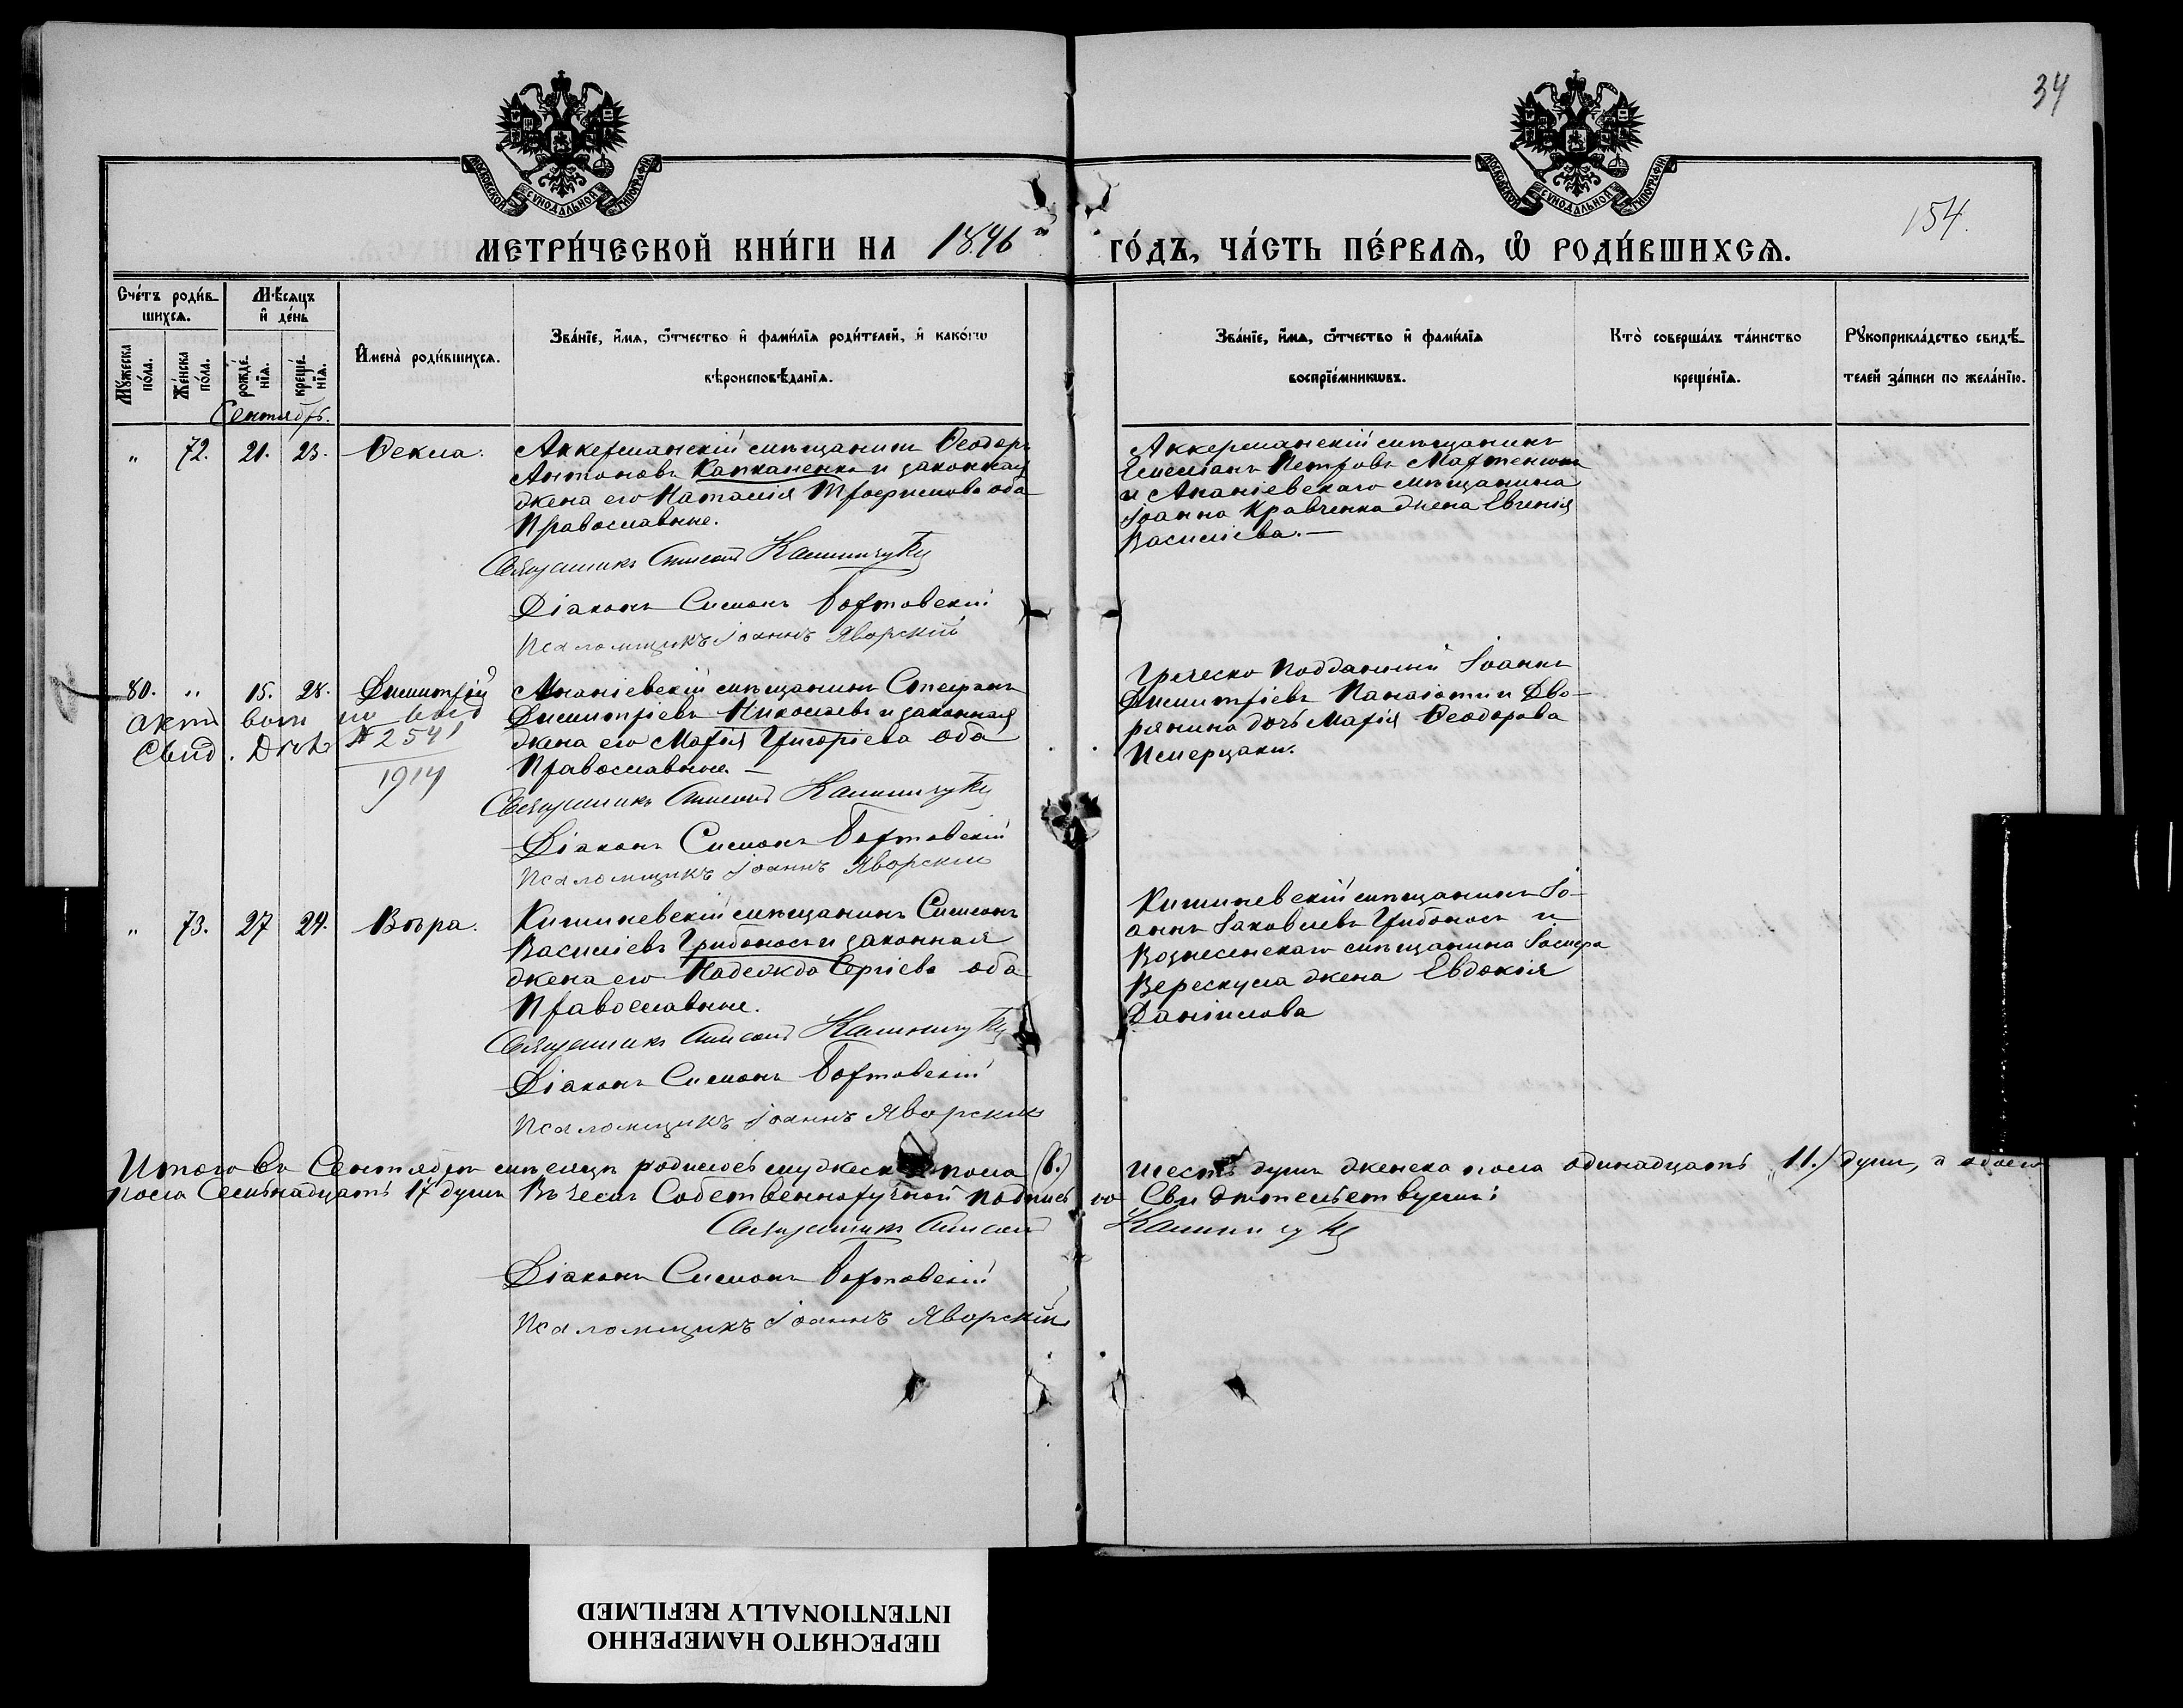 34
154.
МОСКОВСКОЙ СѴНОДАЛЬНОЙ ТИПОГРАФІИ
МОСКОВСКОЙ СѴНОДАЛЬНОЙ ТИПОГРАФІИ
МЕТРИ́ЧЕСКОЙ КНИ́ГИ НА 1896 й
ГО́ДЪ, ЧА́СТЬ ПЕ́РВАѦ, Ѡ РОДИ́ВШИХСѦ.
Сче́тъ роди́в-
шихсѧ.
Мѣ́сѧцъ
и҆ де́нь
Мꙋ́жеска
по́ла.
Же́нска
по́ла.
рожде́-
нїѧ.
креще́-
нїѧ.
И҆мена̀ роди́вшихсѧ.
Зва́нїе, и҆́мѧ, ѻ҆́тчество и҆ фами́лїѧ роди́телей, и҆ како́гѡ
вѣроисповѣ́данїѧ.
Зва́нїе, и҆́мѧ, ѻ҆́тчество и҆ фами́лїѧ
воспрїе́мникѡвъ.
Кто̀ соверша́лъ та́инство
креще́нїѧ.
Рꙋкоприкла́дство свидѣ́-
телей за́писи по жела́нїю.
Сентябрь.
" 72. 21. 23. Ѳекла.
Аккерманскій мѣщанинъ Ѳеодоръ
Антоновъ Капканенко и законная
жена его Наталія Трофимова оба
Православные.
Священникъ Калинчукъ
Діаконъ Симонъ Бортовскій
Псаломщикъ Іоаннъ Яворскій
Аккерманскій мѣщанинъ
Емеліанъ Петровъ Мартенюкъ
и Ананіевскаго мѣщанина
Іоанна Кравченка жена Евгенія
Василіева. —
80. " 15. 28. Димитрій
Ананіевскій мѣщанинъ Стефанъ
Димитріевъ Николаевъ и законная
жена его Марія Григоріева оба
Православные. —
Свид. № 2541
1914
Священникъ Калинчукъ
Діаконъ Симонъ Бортовскій
Псаломщикъ Іоаннъ Яворскій
Греческо Подданный Іоаннъ
Димитріевъ Панаіоти и Дво-
рянина дочь Марія Ѳеодорова
" 73. 27 29. Вѣра.
Кишиневскій мѣщанинъ Симеонъ
Василіевъ Грибоносъ и законная
жена его Надежда Сергіева оба
Православные.
Священникъ Калинчукъ
Діаконъ Симонъ Бортовскій
Псаломщикъ Іоаннъ Яворскій
Кишиневскій мѣщанинъ Іо-
аннъ Іаковлевъ Грибоносъ и
Вознесенскаго мѣщанина Іосифа
Верескула жена Евдокія
Даніилова
Итого въ Сентябрѣ мѣсяцѣ родилось мужеска пола (6.) шесть душъ женска пола одинадцать (11.) душъ, а обоего
пола Семьнадцать 17 душъ Въ чемъ Собственноручной подписью Свидѣтельствуемъ:
Священникъ Калинчукъ
Діаконъ Симонъ Бортовскій
Псаломщикъ Іоаннъ Яворскій
ПЕРЕСНЯТО НАМЕРЕННО
INTENTIONALLY REFILMED